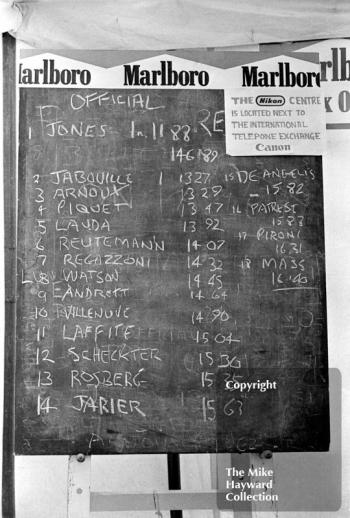 Marlboro Marlboro Marlboro
OFFICIAL
THE Nikon CENTRE
IS LOCATED NEXT TO
THE INTERNATIONAL
TELEPONE EXCHANGE
Canon
1 JONES 1m. 11 88 RE
146 189
2 JABOUILLE 1 13 27
3 ARNOUX 13 29
4 PIQUET 13 47
5 LAUDA 13 92
6 REUTEMANN 14 07
7 REGAZZONI 14 32
8 WATSON 14 45
9 ANDRETT 14 64
10 VILLENUVE 14 90
11 LAFFITE 15 04
12 SCHECKTER 15 36
13 ROSBERG 15
14 JARIER 15 63
15 DE ANGELIS
15.82
16 PATRESE
15.83
17 PIRONI
16.31
18 MASS
16.43
Copyright
The Mike
Hayward
Collection